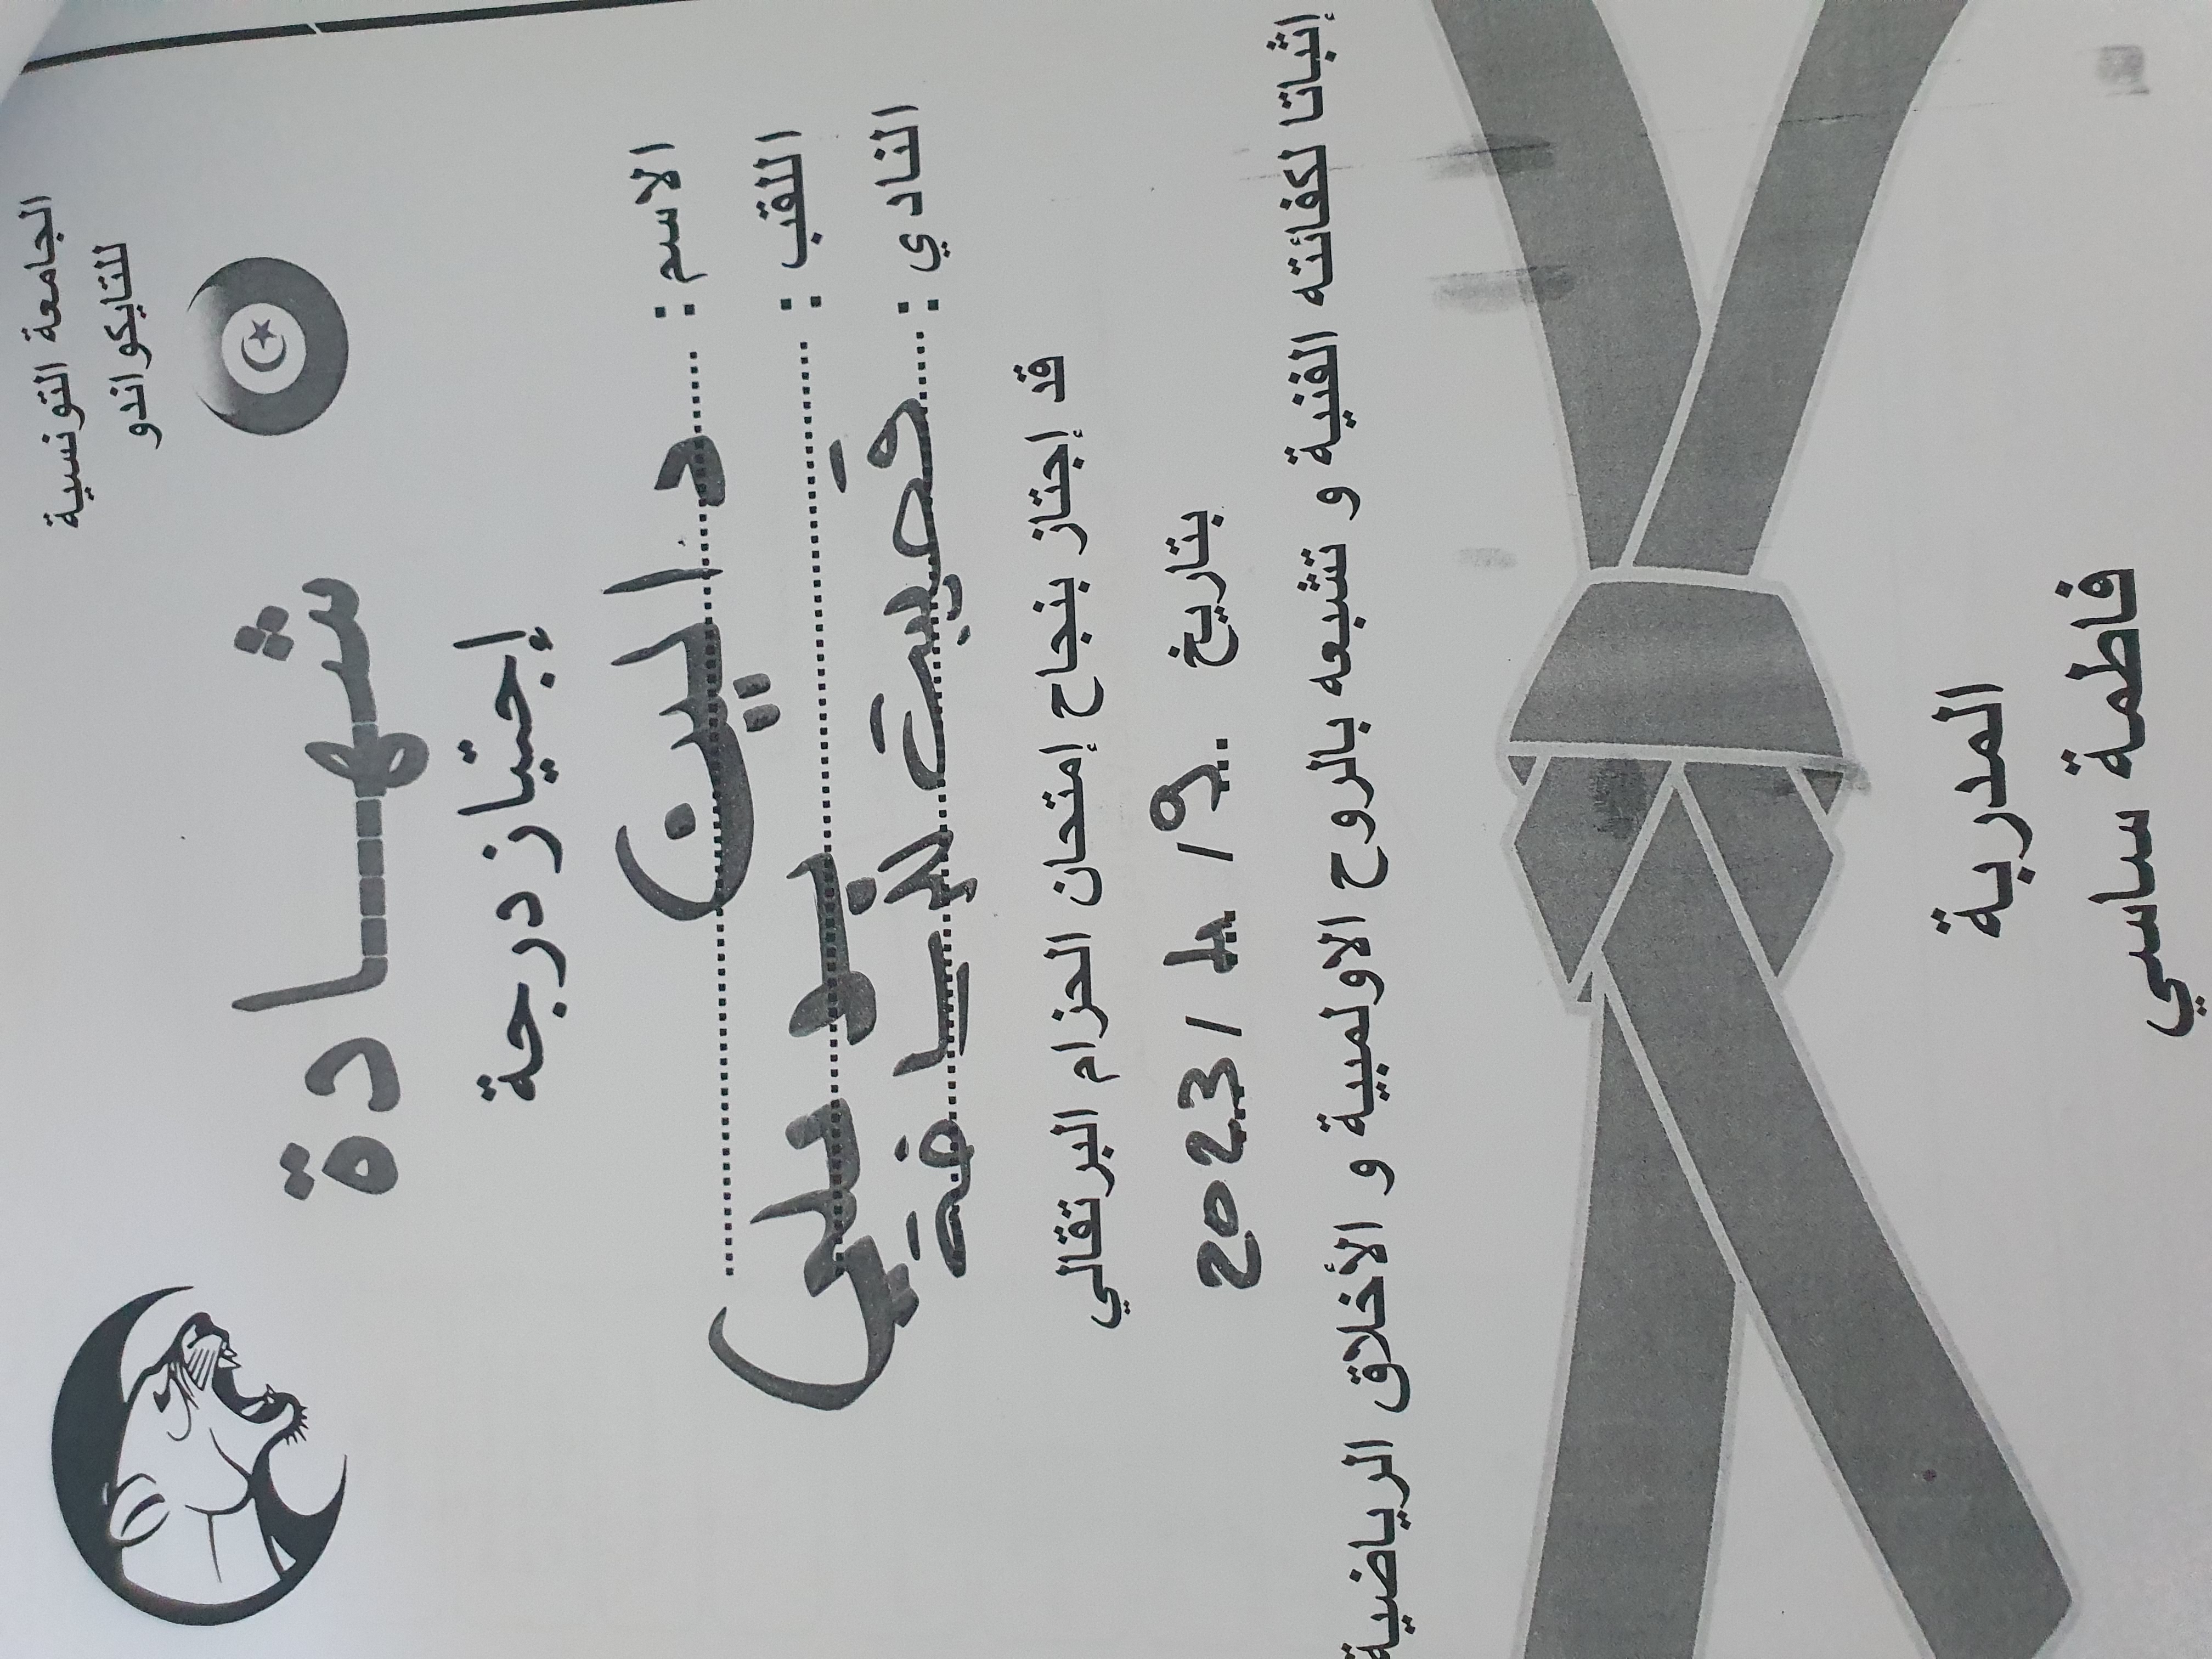 الجامعة التونسية
للتايكواندو
شهـــــادة
إجتياز درجة
الاسم : دالين
اللقب : بوعلي
النادي :
قد إجتاز بنجاح إمتحان الحزام البرتقالي
بتاريخ 2023/4/9
إثباتا لكفائته الفنية و تشبعه بالروح الاولمبية و الأخلاق الرياضية
المدربة
فاطمة ساسي